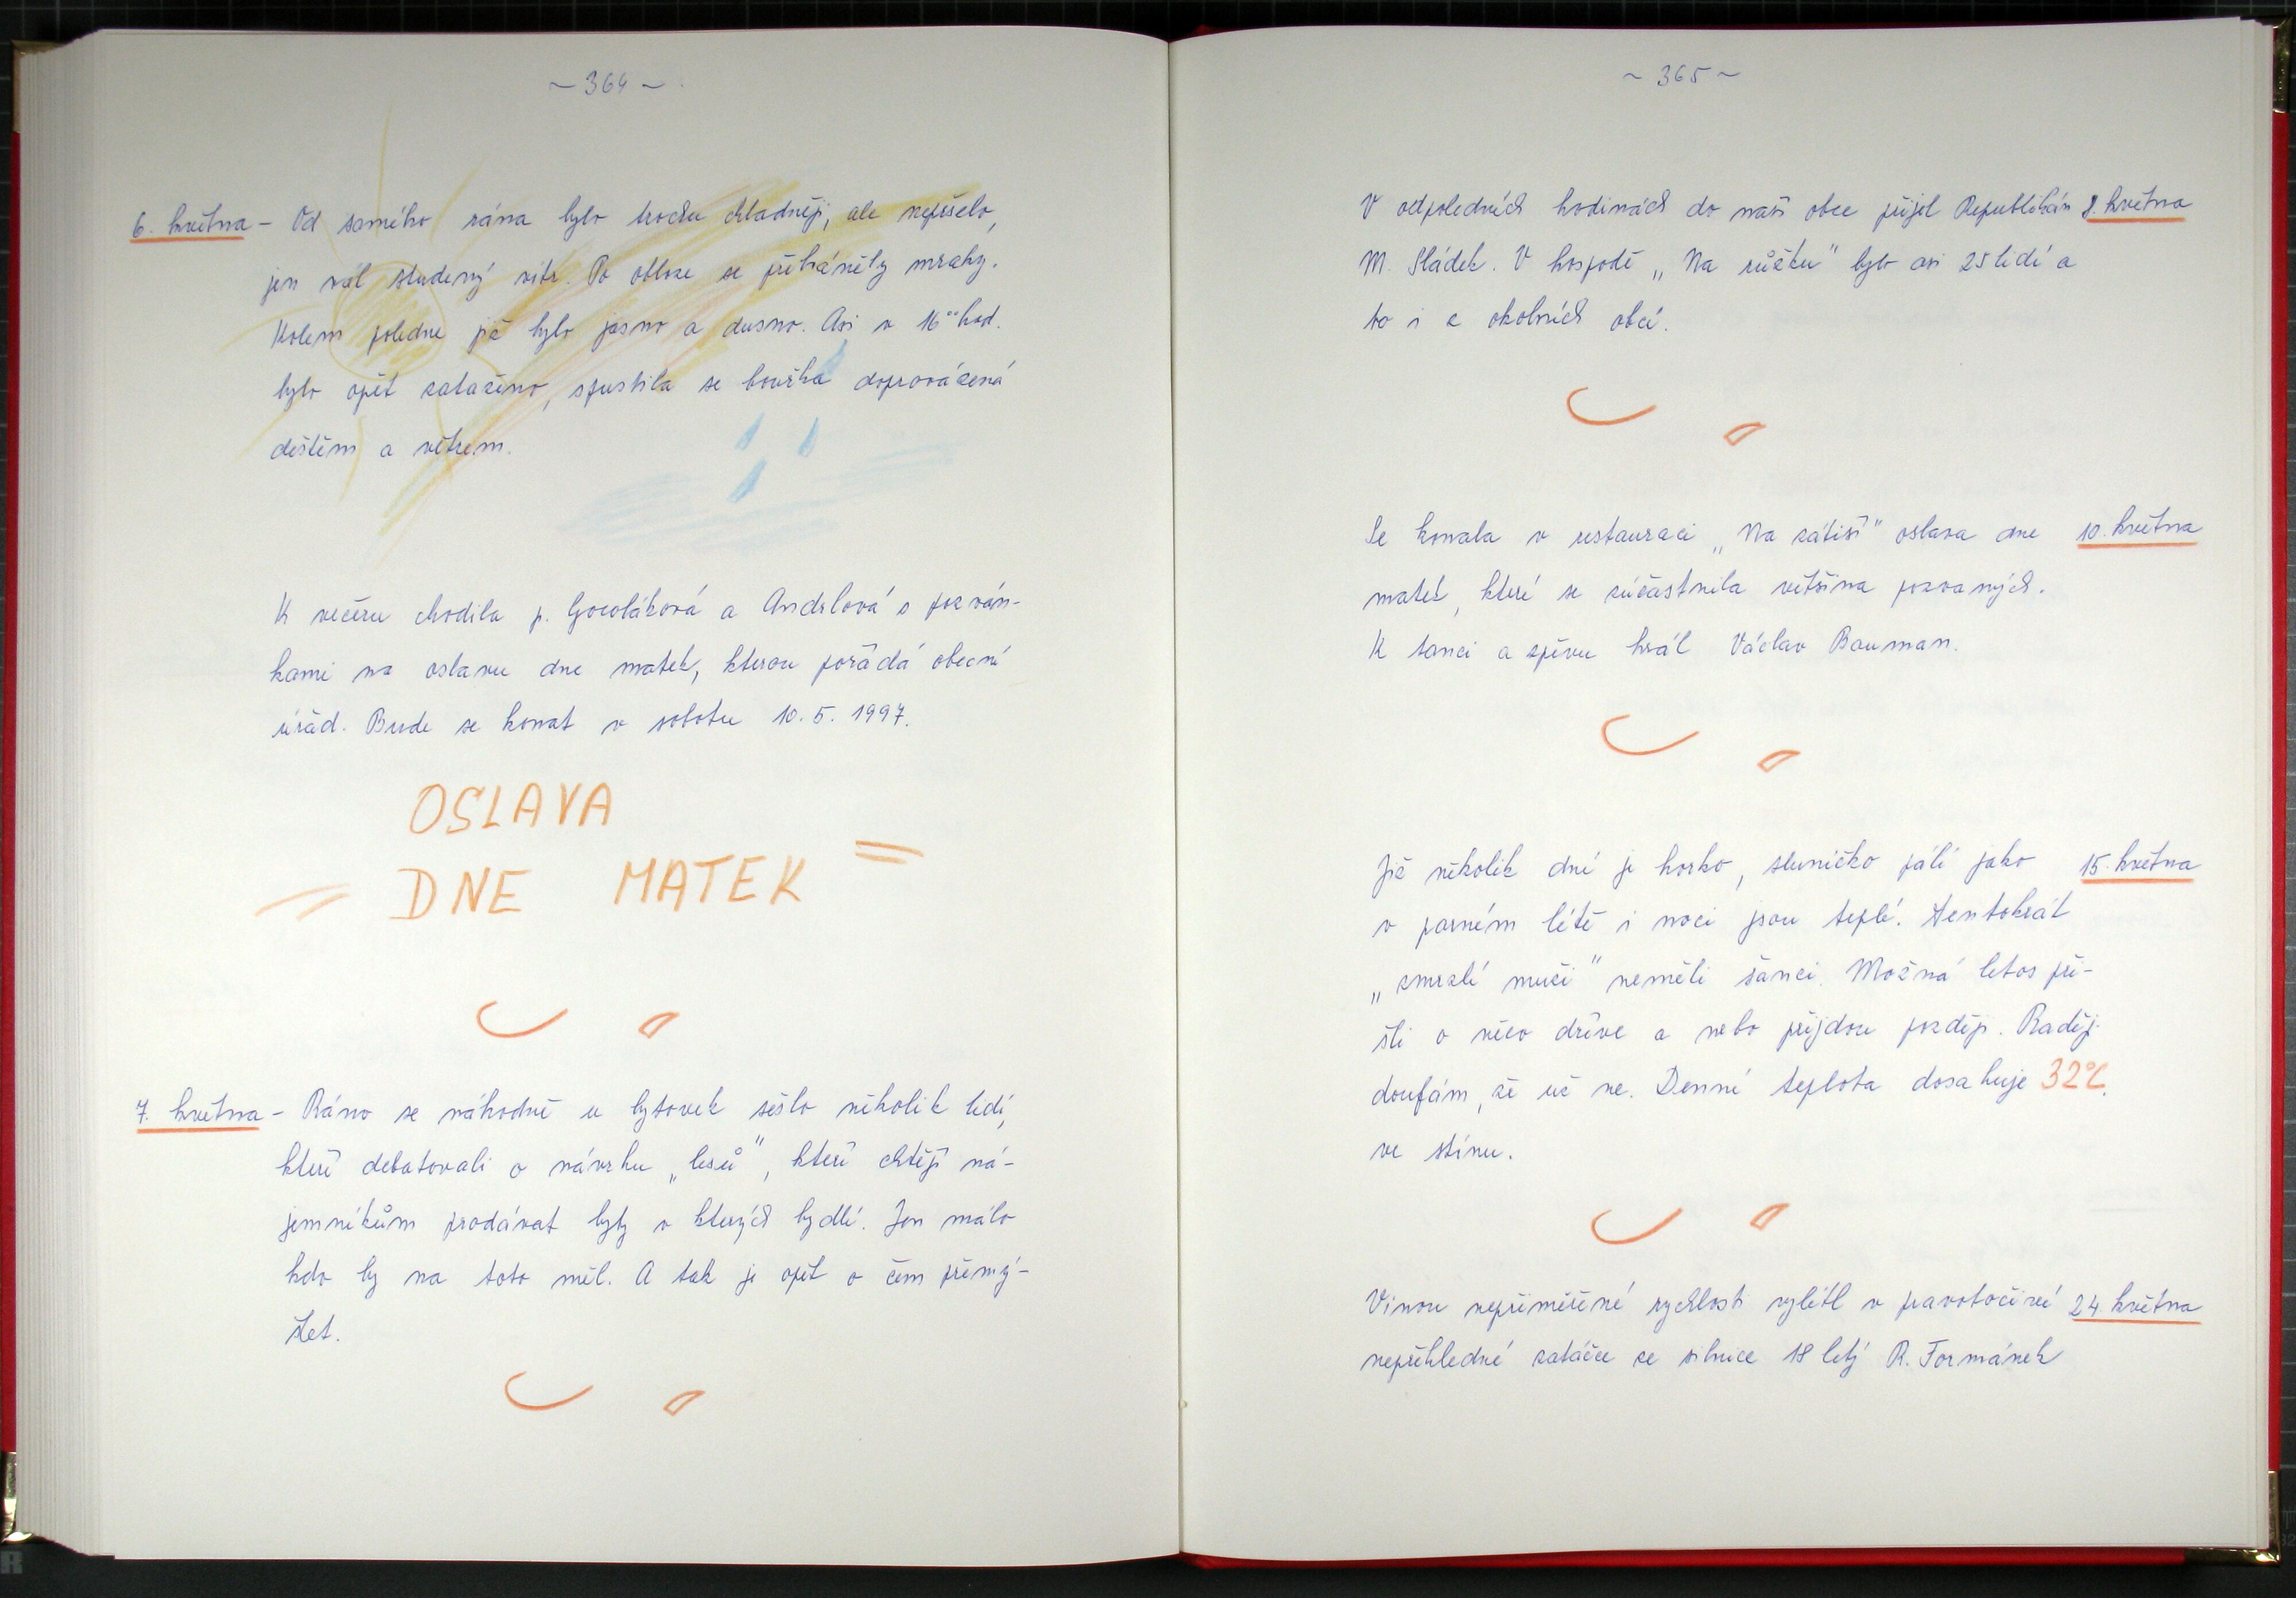 ~ 364 ~
6. května - Od samého rána bylo trochu chladněji, ale nepršelo,
jen vál studený vítr. Po obloze se přeháněly mraky.
Kolem poledne již bylo jasno a dusno. Asi v 16°° hod.
bylo opět zataženo, spustila se bouřka doprovázená
deštěm a větrem.
K večeru chodila p. Gocoláková a Andrlová s pozván-
kami na oslavu dne matek, kterou pořádá obecní
úřad. Bude se konat v sobotu 10. 5. 1997.
OSLAVA
DNE MATEK
7. května - Ráno se náhodně u bytovek sešlo několik lidí,
kteří debatovali o návrhu „lesů", kteří chtějí ná-
jemníkům prodávat byty v kterých bydlí. Jen málo
kdo by na toto měl. A tak je opět o čem přemý-
šlet.
~ 365 ~
V odpoledních hodinách do naší obce přijel Republikán 8. května
M. Sládek. V hospodě „Na růžku" bylo asi 25 lidí a
to i z okolních obcí.
Se konala v restauraci „Na zátiší" oslava dne 10. května
matek, které se zúčastnila většina pozvaných.
K tanci a zpěvu hrál Václav Bauman.
Již několik dní je horko, sluníčko pálí jako 15. května
v parném létě i noci jsou teplé. Tentokrát
„zmrzlí muži" neměli šanci. Možná letos při-
šli o něco dříve a nebo přijdou později. Raději
doufám, že už ne. Denní teplota dosahuje 32°C.
ve stínu.
Vinou nepřiměřené rychlosti vylétl v pravotočivé 24. května
nepřehledné zatáčce ze silnice 18 letý R. Formánek